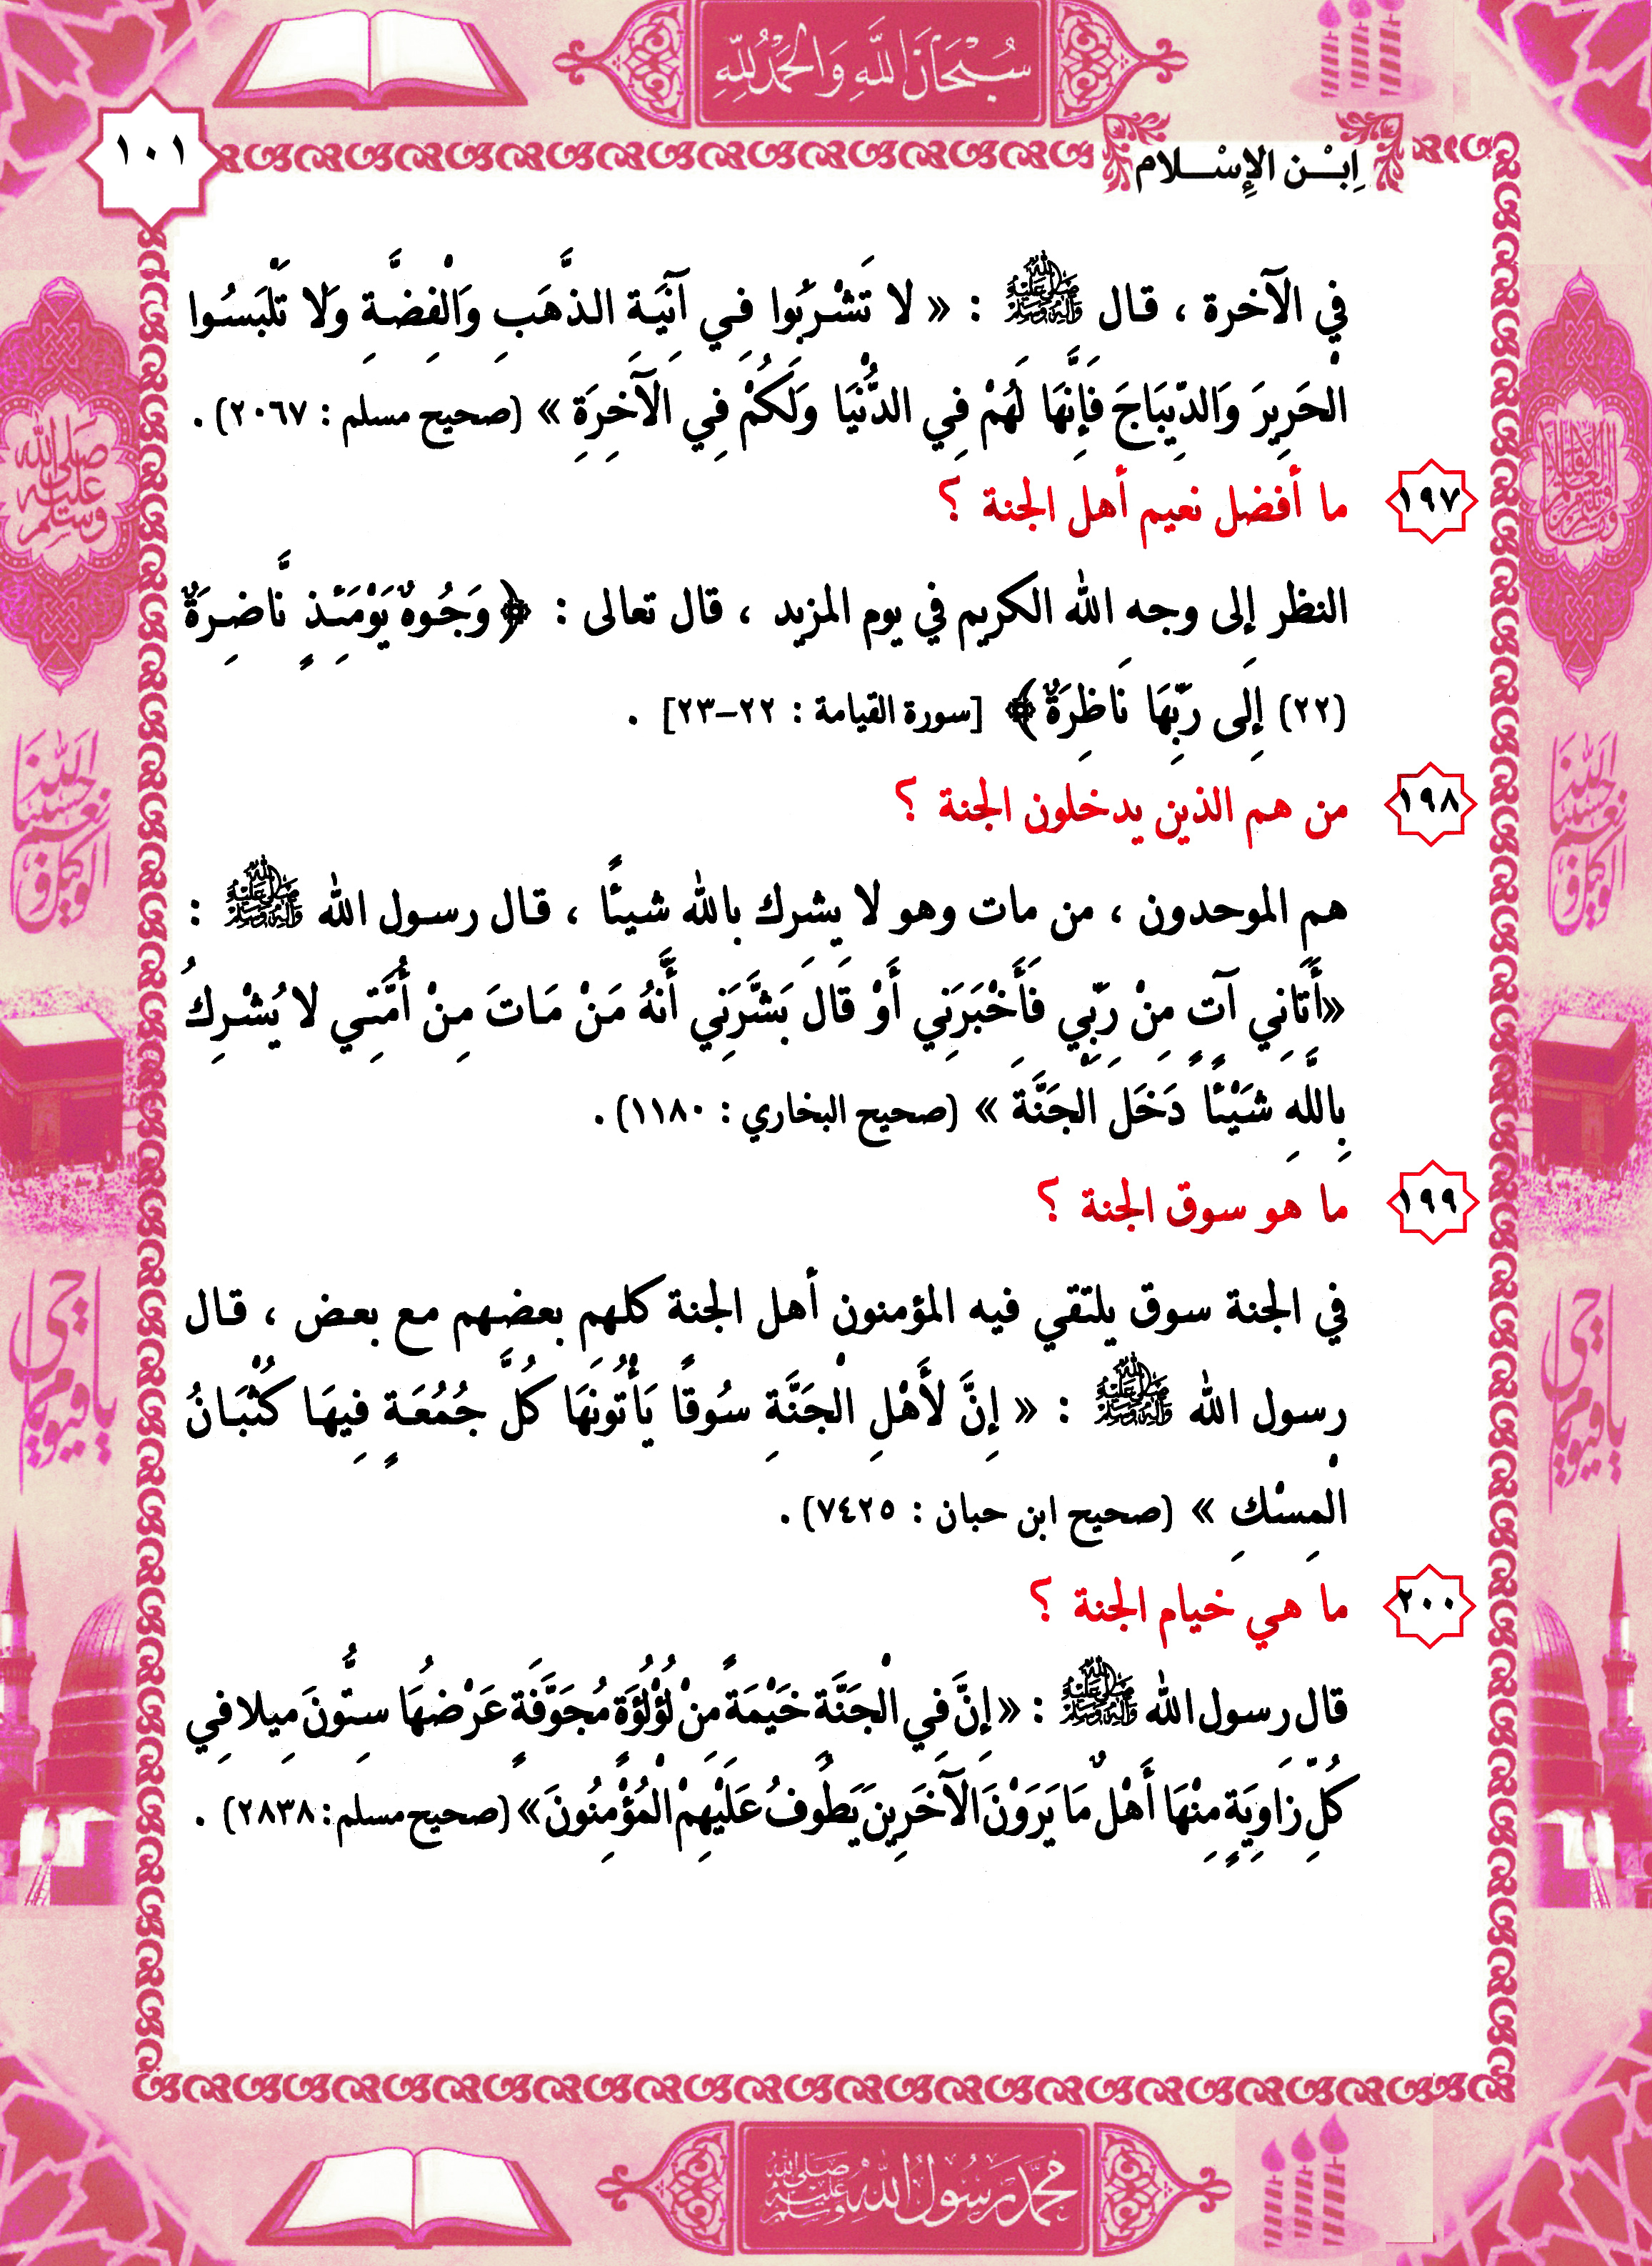 سُبْحَانَ اللَّهِ وَالحَمْدُ لِلَّهِ
١٠١
اِبْـن الإِسْـلام
في الآخرة ، قـال ﷺ : « لا تَشْـرَبُوا فِـي آنِيَـةِ الـذَّهَـبِ وَالْفِضَّـةِ وَلَا تَلْبَسُـوا
الْحَرِيرَ وَالدِّيبَاجَ فَإِنَّهَا لَهُمْ فِي الدُّنْيَا وَلَكُمْ فِي الْآخِرَةِ » (صحيح مسلم : ٢٠٦٧) .
١٩٧ ما أفضل نعيم أهل الجنة ؟
النظر إلى وجه الله الكريم في يوم المزيد ، قال تعالى : ﴿ وُجُوهٌ يَوْمَئِذٍ نَّاضِرَةٌ
(٢٢) إِلَى رَبِّهَا نَاظِرَةٌ ﴾ [سورة القيامة : ٢٢-٢٣] .
١٩٨ من هم الذين يدخلون الجنة ؟
هم الموحدون ، من مات وهو لا يشرك بالله شيئًا ، قـال رسـول الله ﷺ :
«أَتَانِي آتٍ مِنْ رَبِّي فَأَخْبَرَنِي أَوْ قَالَ بَشَّرَنِي أَنَّهُ مَنْ مَـاتَ مِـنْ أُمَّتِـي لا يُشْـرِكُ
بِاللَّهِ شَيْئًا دَخَلَ الْجَنَّةَ » (صحيح البخاري : ١١٨٠) .
١٩٩ ما هو سوق الجنة ؟
في الجنة سوق يلتقي فيه المؤمنون أهل الجنة كلهم بعضهم مع بعض ، قـال
رسول الله ﷺ : « إِنَّ لَأَهْلِ الْجَنَّةِ سُوقًا يَأْتُونَهَا كُلَّ جُمُعَـةٍ فِيهَـا كُثْبَـانُ
الْمِسْكِ » (صحيح ابن حبان : ٧٤٢٥) .
٢٠٠ ما هي خيام الجنة ؟
قال رسول الله ﷺ : «إِنَّ فِي الْجَنَّةِ خَيْمَةً مِنْ لُؤْلُؤَةٍ مُجَوَّفَةٍ عَرْضُهَا سِتُّونَ مِيلا فِي
كُلِّ زَاوِيَةٍ مِنْهَا أَهْلٌ مَا يَرَوْنَ الْآخَرِينَ يَطُوفُ عَلَيْهِمْ الْمُؤْمِنُونَ» (صحيح مسلم: ٢٨٣٨) .
صلى الله عليه وسلم
حسبنا الله ونعم الوكيل
يا حي يا قيوم
حسبنا الله ونعم الوكيل
يا حي يا قيوم
محمد رسول الله صلى الله عليه وسلم